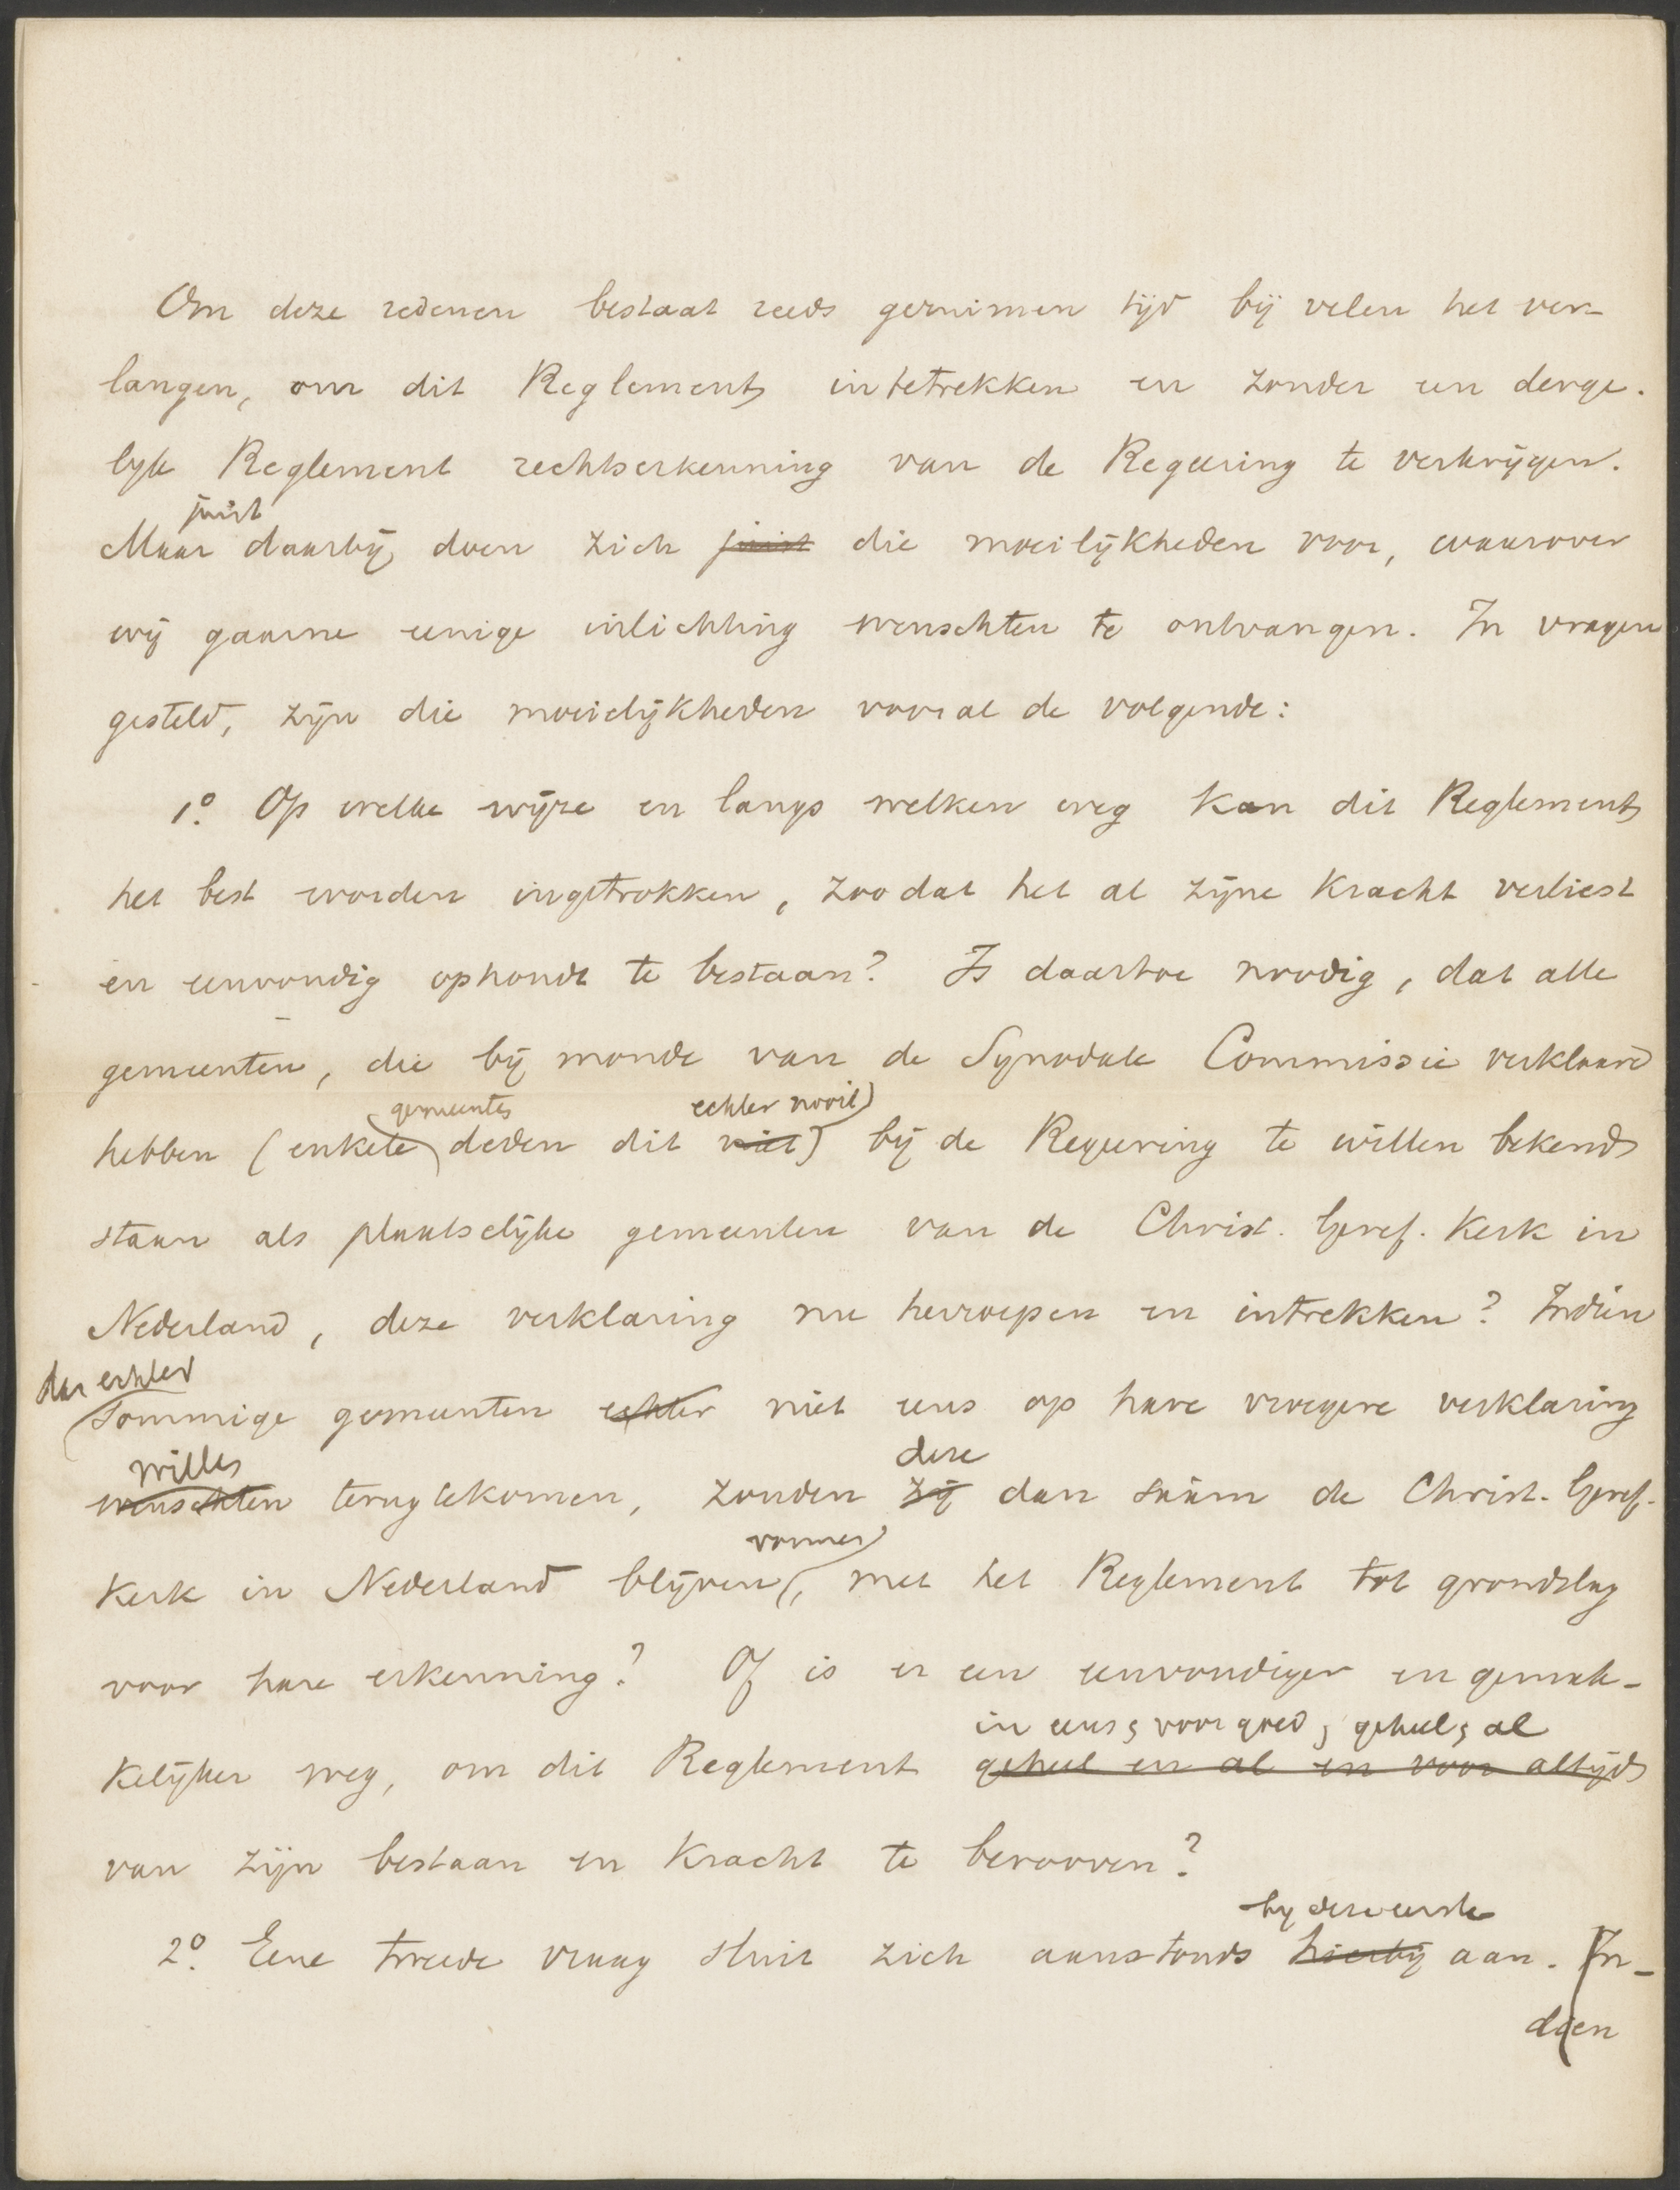 Om deze redenen bestaat reeds geruimen tijd bij velen het ver-
langen, om dit Reglement intetrekken en zonder een derge-
lijk Reglement rechtserkenning van de Regeering te verkrijgen.
juist
Maar daarbij doen zich juist die moeilijkheden voor, waarover
wij gaarne eenige inlichting wenschten te ontvangen. In vragen
gesteld, zijn die moeielijkheden vooral de volgende:
1o. Op welke wijze en langs welken weg kan dit Reglement
het best worden ingetrokken, zoodat het al zijne kracht verliest
en eenvoudig ophoudt te bestaan? Is daartoe noodig, dat alle
gemeenten, die bij monde van de Synodale Commissie verklaard
gemeenten echter nooit)
hebben (enkele deden dit niet) bij de Regeering te willen bekend
staan als plaatselijke gemeenten van de Christ. Geref. Kerk in
Nederland, deze verklaring nu herroepen en intrekken? Indien
dan echter
sommige gemeenten echter niet eens op hare vroegere verklaring
willen deze
wenschten terugtekomen, zouden zij dan saâm de Christ. Geref.
vormen
Kerk in Nederland blijven, met het Reglement tot grondslag
voor hare erkenning? Of is er een eenvoudiger en gemak-
in eens, voor goed, geheel, al
kelijker weg, om dit Reglement geheel en al en voor altijd
van zijn bestaan en kracht te berooven?
bij deze eerste
2o. Eene tweede vraag sluit zich aanstonds hierbij aan. In-
dien